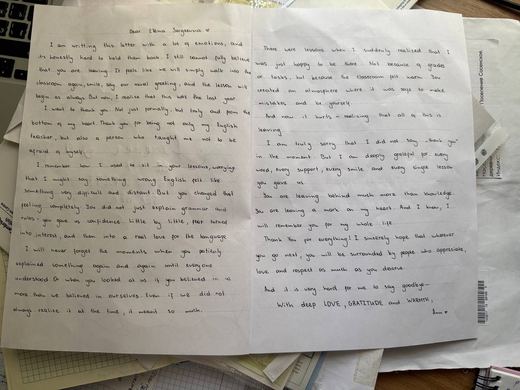 Dear Elena Sergeevna ♥
I am writting this letter with a lot of emotions, and
it's honestly hard to hold them back. I still cannot fully believe
that you are leaving. It feels like we will simply walk into the
classroom again, smile, say our usual greeting, and the lesson will
begin as always. But now, I realise that this was the last year.
I want to thank you. Not just formally, but truly and from the
bottom of my heart. Thank you for being not only my English
teacher, but also a person who taught me not to be
afraid of myself.
I remember how I used to sit in your lessons, worrying
that I might say something wrong. English felt like
something very difficult and distant. But you changed that
feeling completely. You did not just explain grammar and
rules, you gave us confidence. Little by little, fear turned
into interest, and then into a real love for the language.
I will never forget the moments when you patiently
explained something again and again until everyone
understood. Or when you looked at us if you believed in us
more than we believed in ourselves. Even if we did not
always realize it at the time, it meant so much.
There were lessons when I suddenly realised that I
was just happy to be there. Not because of grades
or tasks, but because the classroom felt warm. You
created an atmosphere where it was safe to make
mistakes and be yourself.
And now it hurts - realizing that all of this is
leaving.
I am truly sorry that I did not say "thank you"
in the moment. But I am deeply grateful for every
word, every support, every smile and every single lesson
you gave us.
You are leaving behind much more than knowledge.
You are leaving a mark on my heart. And I know, I
will remember you for my whole life.
Thank You for everything! I sincerely hope that wherever
you go next, you will be surrounded by people who appreciate,
love and respect as much as you deserve.
And it is very hard for me to say goodbye-
With deep LOVE, GRATITUDE and WARMTH,